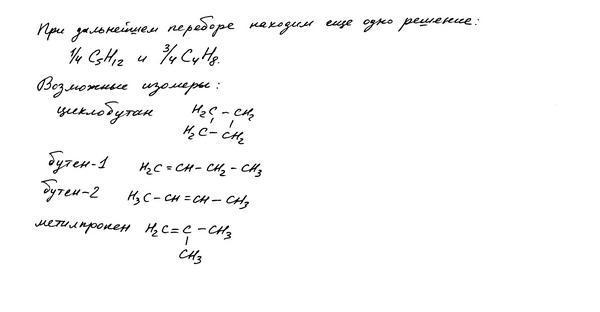 При дальнейшем переборе находим еще одно решение:
1/4 C5H12 и 3/4 C4H8.
Возможные изомеры:
циклобутан H2C – CH2
H2C – CH2
бутен-1 H2C = CH – CH2 – CH3
бутен-2 H3C – CH = CH – CH3
метилпропен H2C = C – CH3
CH3